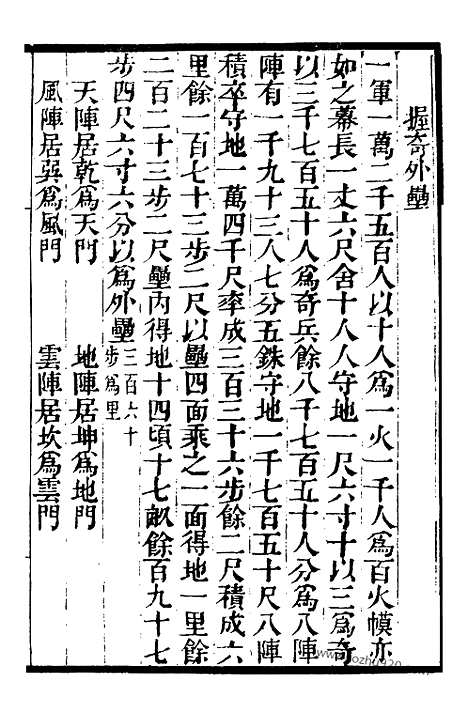 握奇外壘
一軍一萬二千五百人以十人為一火一千人為百火幙亦
如之幕長一丈六尺舍十人人守地一尺六寸十以三為奇
以三千七百五十人為奇兵餘八千七百五十人分為八陣
陣有一千九十三人七分五銖守地一千七百五十尺八陣
積卒守地一萬四千尺率成三百三十六步餘二尺積成六
里餘一百七十三步二尺以壘四面乘之一面得地一里餘
二百二十三步二尺壘內得地十四頃十七畝餘百九十七
步四尺六寸六分以為外壘三百六十步為里
天陣居乾為天門 地陣居坤為地門
風陣居巽為風門 雲陣居坎為雲門